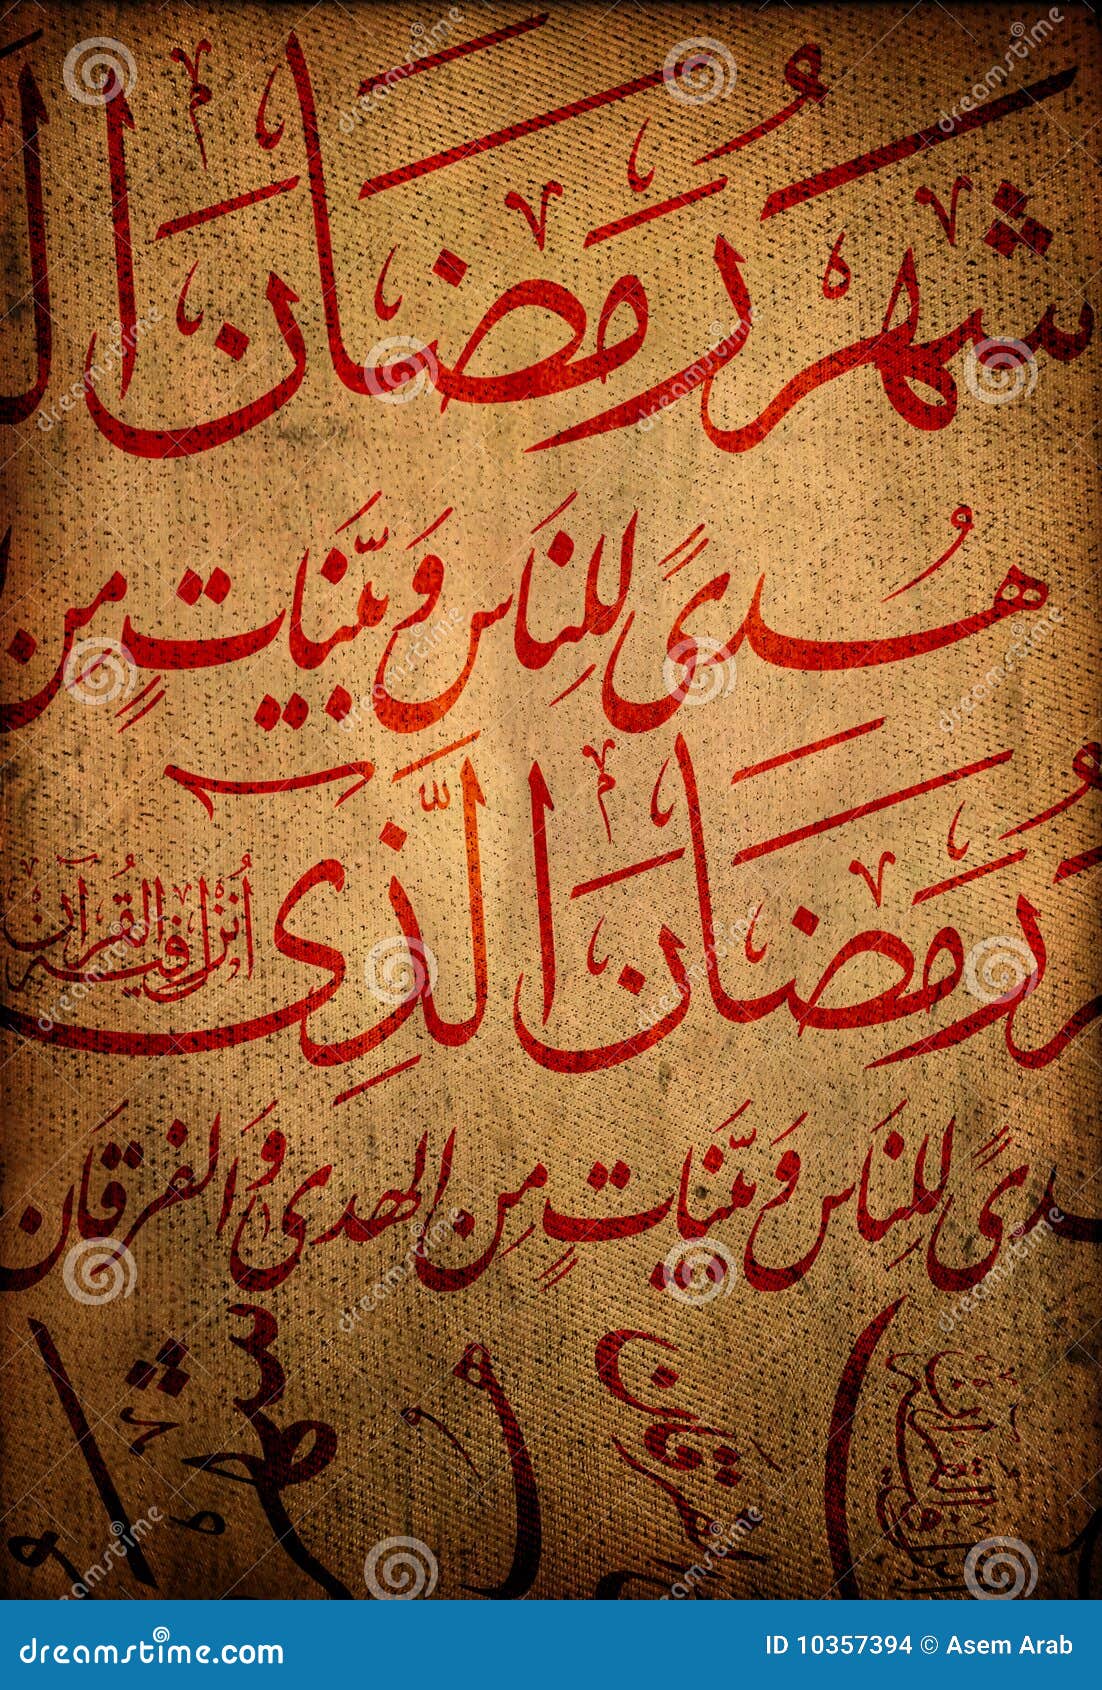 شَهْرُ رَمَضَانَ ال
هُدًى لِلنَّاسِ وَبَيِّنَاتٍ مِنَ
رُ رَمَضَانَ الَّذِي أُنْزِلَ فِيهِ الْقُرْآنُ
دًى لِلنَّاسِ وَبَيِّنَاتٍ مِنَ الْهُدَى وَالْفُرْقَانِ
dreamstime.com
ID 10357394 © Asem Arab